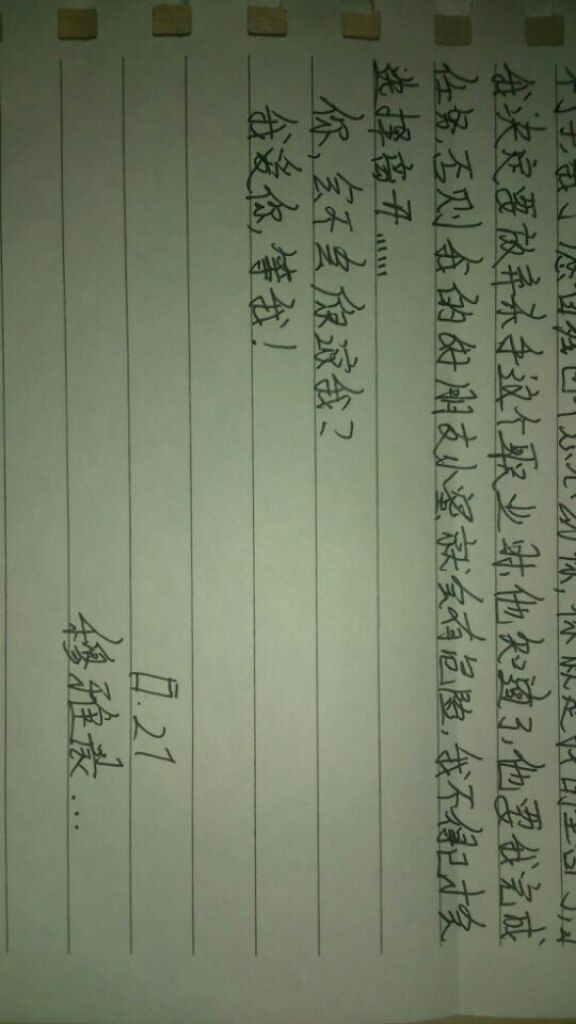 我决定要放弃杀手这个职业时,他知道了,他要我完成
任务,否则我的好朋友小蜜就会有危险,我不得已才会
选择离开……
你,会不会原谅我?
我爱你,等我!
.27
穆雅...